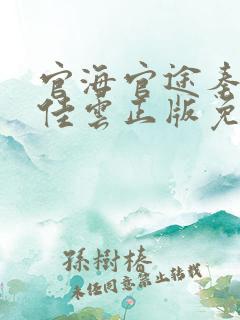 官海官途秦
佳雲正版免
孫樹椿
未经同意禁止转载